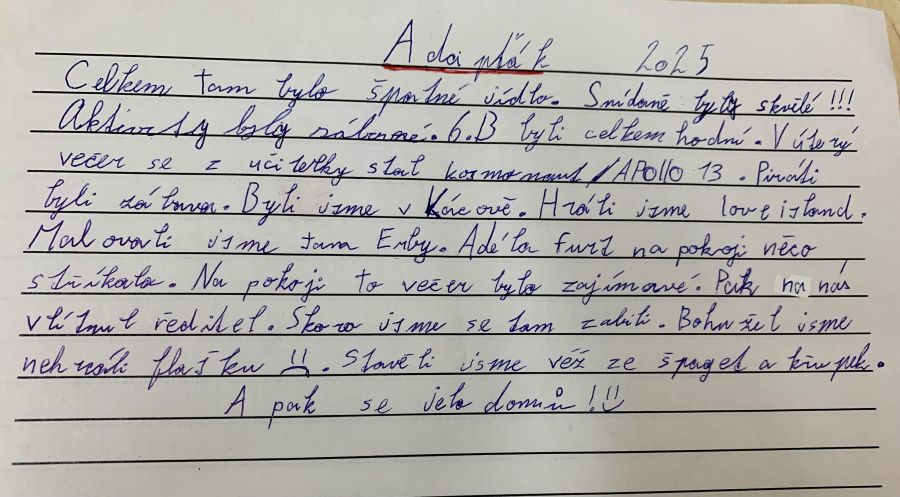 Adapťák 2025
Celkem tam bylo špatné jídlo. Snídaně byly skvělé!!!
Aktivity byly zábavné. 6.B byli celkem hodní. V úterý
večer se z učitelky stal kosmonaut/APOllO 13. Piráti
byli zábava. Byli jsme v Kácově. Hráli jsme love island.
Malovali jsme tam Erby. Adéla furt na pokoji něco
stříkala. Na pokoji to večer bylo zajímavé. Pak na nás
vlítnul ředitel. Skoro jsme se tam zabili. Bohužel jsme
nehráli flašku :(. Stavěli jsme věž ze špaget a křupek.
A pak se jelo domů! :)